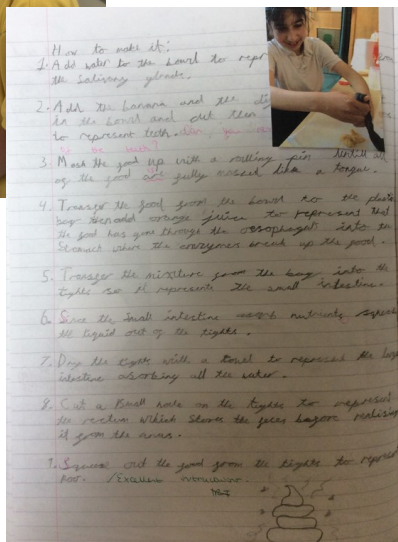 How to make it:
1. Add water to the bowl to repr
the salivary glands.
2. Add the banana and the
in the bowl and cut them
to represent teeth.
3. Mash the food up with a rolling pin untill all
of the food are fully mashed like a tongue.
4. Transfer the food from the bowl to the plastic
bag then add orange juice to represent that
the food has gone through the oesophagus into the
stomach where the enzymes break up the food.
5. Transfer the mixture from the bag into the
tights so it represents the small intestine.
6. Since the small intestine nutrients
the liquid out of the tights.
7. Dry the tights with a towel to represent the large
intestine absorbing all the water.
8. Cut a small hole on the tights to represent
the rectum which stores the before
it from the anus.
9. Squeeze out the food from the tights to represent
poo. /Excellent